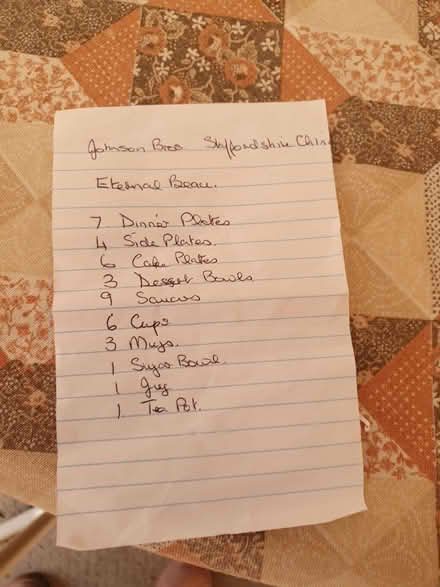 Johnson Bros Staffordshire China
Eternal Beau.
7 Dinner Plates
4 Side Plates.
6 Cake Plates
3 Dessert Bowls
9 Saucers
6 Cups
3 Mugs.
1 Sugar Bowl.
1 Jug
1 Tea Pot.